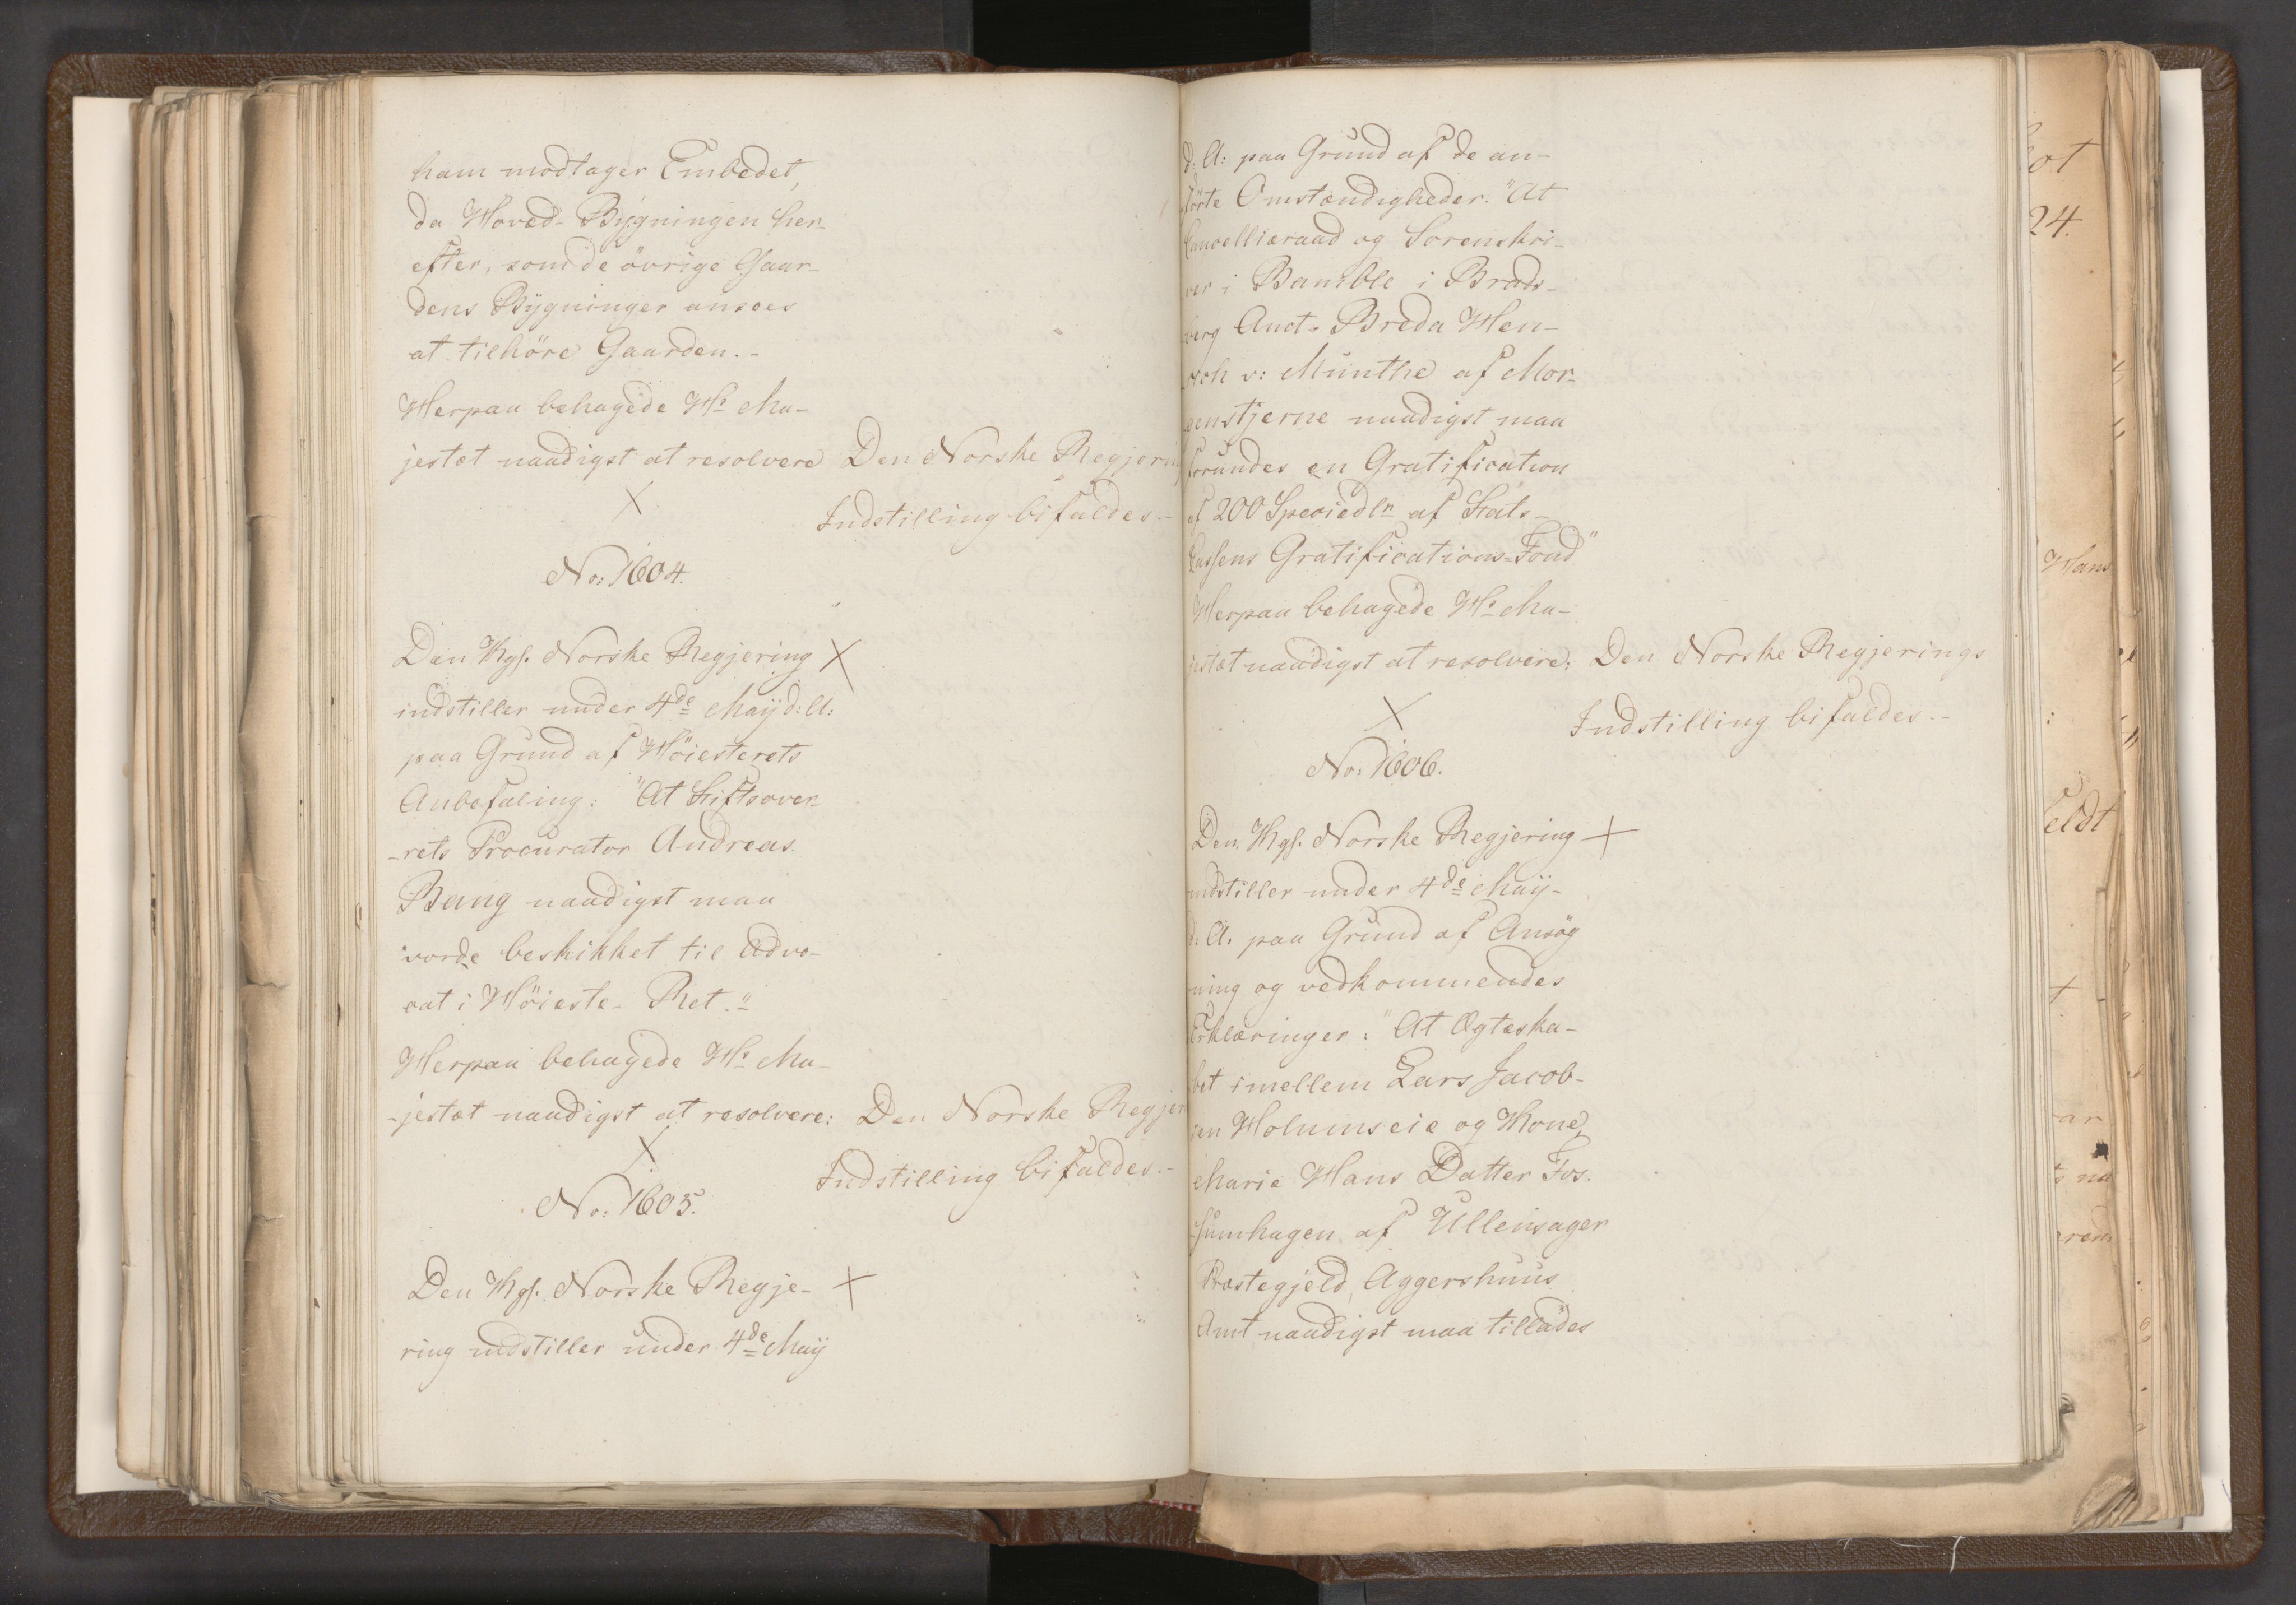 ham modtager Embedet,
da Hoved-Bygningen her-
efter, som de övrige Gaar-
dens Bygninger ansees
at tilhöre Gaarden. -
Herpaa behagede Hs Ma-
jestæt naadigst at resolvere
Den Norske Regjering
Indstilling bifaldes. -
No: 1604.
Den Kgl. Norske Regjering
indstiller under 4de Maÿ d: A:
paa Grund af Höiesterets
Anbefaling: "At Stiftsover-
-rets Procurator Andreas
Bang naadigst maa
vorde beskikket til Advo-
cat i Höieste-Ret."
Herpaa behagede Hs Ma-
-jestæt naadigst at resolvere:
Den Norske Regjer
Indstilling bifaldes. -
No: 1605.
Den Kgl. Norske Regje-
ring indstiller under 4de Maÿ
d: A: paa Grund af de an-
förte Omstændigheder. "At
Cancelliæraad og Sorenskri-
ver i Bamble i Brads-
berg Amt. Breda Hen-
rich v: Munthe af Mor-
genstjerne naadigst maa
forundes en Gratification
af 200 Speciedlr af Stats-
Cassens Gratifications-Fond"
Herpaa behagede Hs Ma-
jestæt naadigst at resolvere:
Den Norske Regjerings
Indstilling bifaldes. -
No: 1606.
Den Kgl. Norske Regjering
indstiller under 4de Maÿ-
d: A. paa Grund af Ansög
ning og vedkommendes
Erklæringer: "At Ægteska-
bet imellem Lars Jacob-
sen Holumseie og Kone,
Marie Hans Datter Fos.
-sumhagen af Ullensager
Præstegjeld, Aggershuus
Amt naadigst maa tillades
ot
24.
Hans
feldt